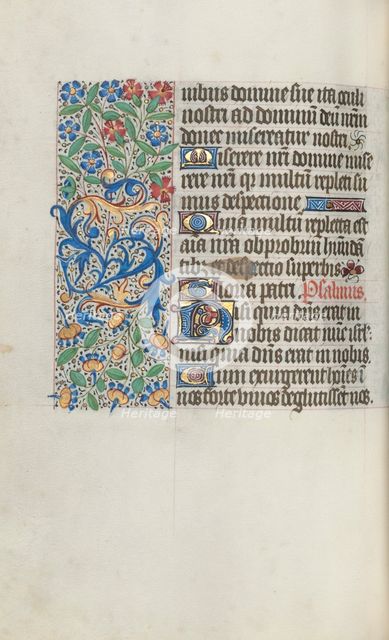 nibus domine sue ita oculi
nostri ad dominū deū nrm
donec misereatur nostri
Miserere nrī domine mise
rere nrī qꝫ multū repleti su
mus despectione
Quia multum repleta est
aīa nrā obprobriū habundā
tibꝫ despectio superbis
Gloria patri. Psalmus
Nisi quia dn̄s erat in
nobis dicat nunc isrl
nisi quia dn̄s erat in nobis
Cum exurgerent hoīes ī
nos forte vivos deglutisset nos.
heritage
Heritage
Heritage